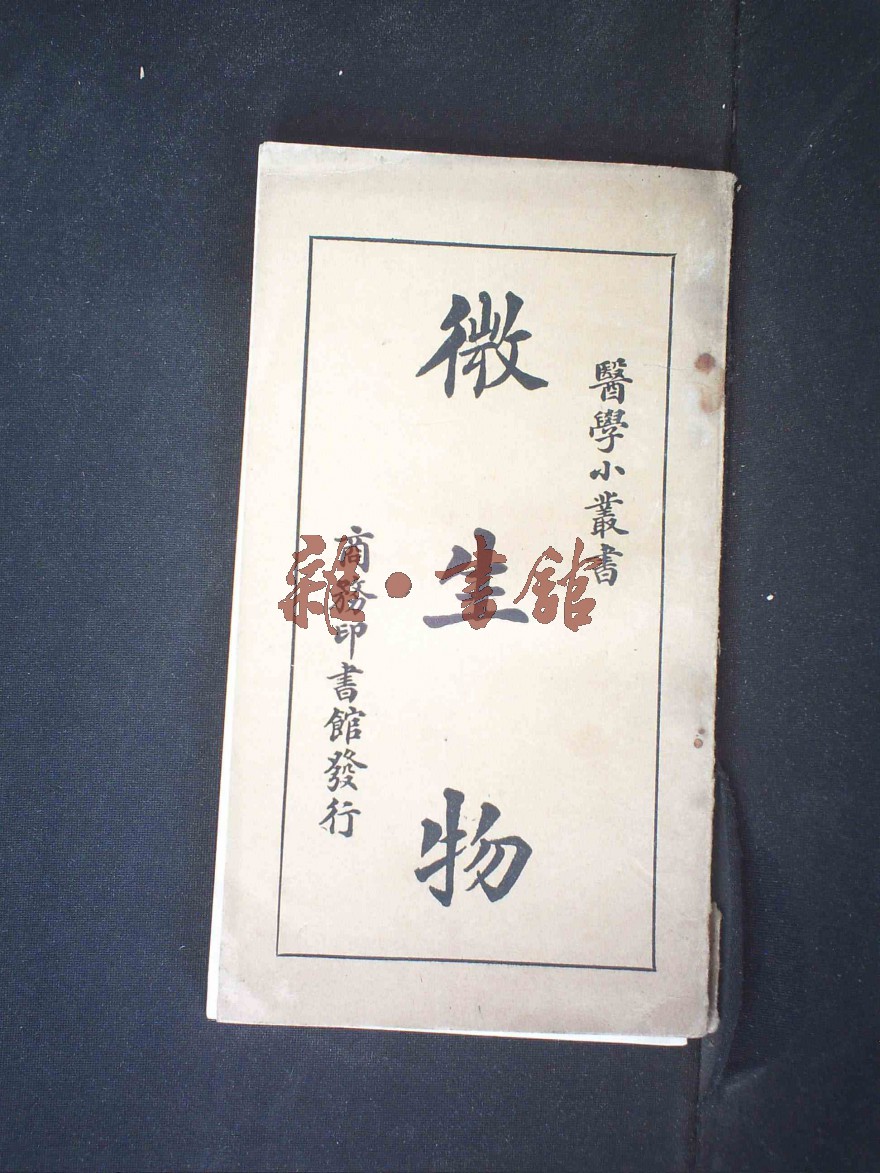 醫學小叢書
微生物
商務印書館發行
雜·書館